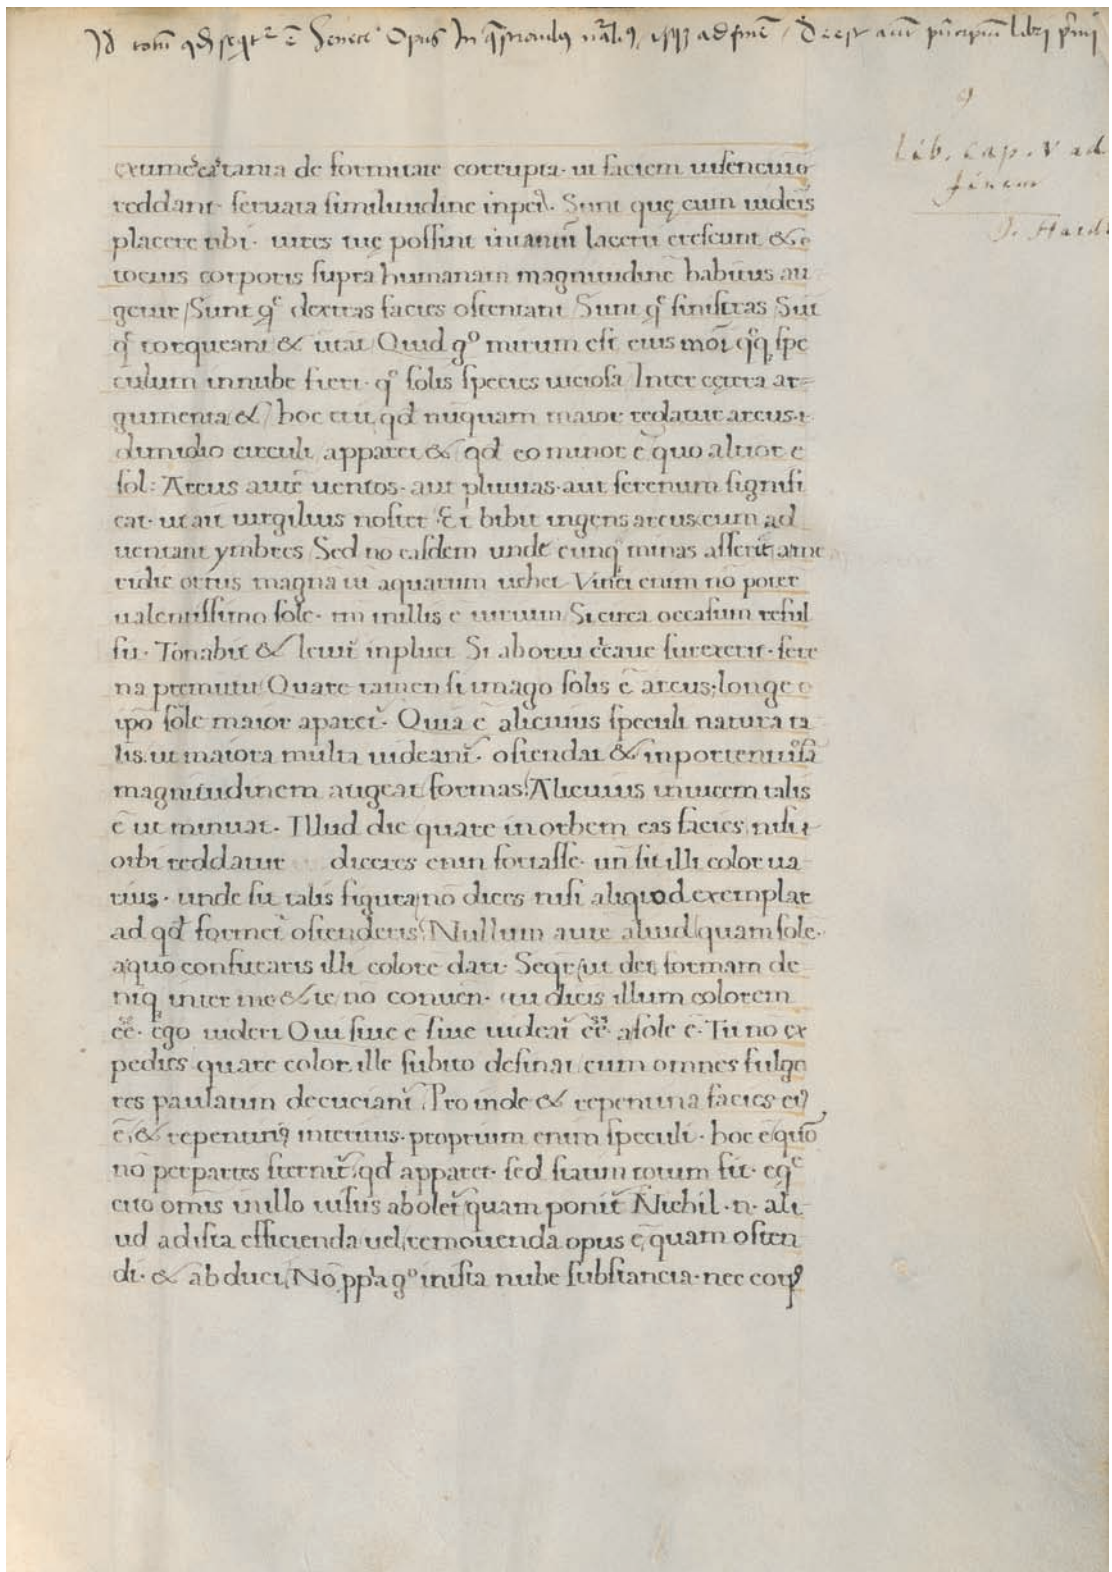 Id totũ qd̃ seqt᷑ ẽ Senece Opus In q̃stionibus nr̃alibꝰ usqꝫ ad finẽ / Deest autẽ prĩcipiũ libri prĩmi
9
Lib. cap. V ad
finem
J. Hard
de formitate corrupta· ut faciem uisencium
reddant· seruata similitudine inpeıł. Sunt quę cum uideis
placere tibi· uires tuę possint in tantũ lacerti crescunt &
tocius corporis supra humanam magnitudinẽ habitus au
getur / Sunt qͤ dextras facies ostentant Sunt qͤ sinistras Sũt
qͤ torqueant & utãt Quid gͦ mirum est eius moı̃ qͦqꝫ spe
culum in nube fieri· qͦ solis species uiciosa Inter cętera ar=
gumenta & hoc erit, qd̃ nũquam maior redatur arcus·
dimidio circuli apparet & qd̃ eo minor ẽ quo altior e
sol: Arcus autẽ uentos· aut pluuias· aut serenum signifi
cat· ut ait uirgilius noster Et bibit ingens arcus cum ad
uentant ymbres Sed nõ easdem unde cunqꝫ minas afferit a me
ridie ortus magnã uı̃ aquarum uehet Vinci enim nõ poter
ualentissimo sole· tm̃ in illis e uirium Si circa occasum reful
sit· Tonabit & leuit᷑ inpluet Si ab ortu surexerit· sere
na premitit Quare tamen si imago solis ẽ arcus; longe
ip̃o sole maior aparet᷑· Quia ẽ alicuius speculi natura ta
lis. ut maiora multa uideant᷑· ostendat & in portentuosã
magnitudinem augeat formas: Alicuius inuicem talis
ẽ ut minuat· Illud dic quare in orbem eas facies, nisi
orbi reddatur diceres enim fortasse· uñ sit illi color ua
rius· unde sit talis figura, nõ dices nisi aliquod exemplar
ad qd̃ formet᷑ ostenderis: Nullum autẽ aliud quam sole·
a quo confitearis illi colorẽ dari· Seqr̃ ut det formam de
niqꝫ inter me & te nõ conuen· tu dicis illum colorem
eẽ· ego uideri Qui siue e siue uideat᷑ eẽ· a sole ẽ· Tu nõ ex
pedies quare color. ille subito desinat cum omnes fulgo
res paulatim decuciant᷑. Proinde & repentina facies eiꝰ
ẽ, & repentinꝰ interitus· proprium enim speculi· hoc ẽ quõ
nõ per partes sternit᷑ qd̃ apparet· sed statim totum fit· eqͤ
cito om̃is in illo uisus abolet᷑ quam ponit᷑ Nichil ·n· ali
ud ad ista efficienda uel remouenda opus ẽ, quam osten
di· & abduci, Nõ pp̃a gͦ in ista nube substancia· nec corpꝰ